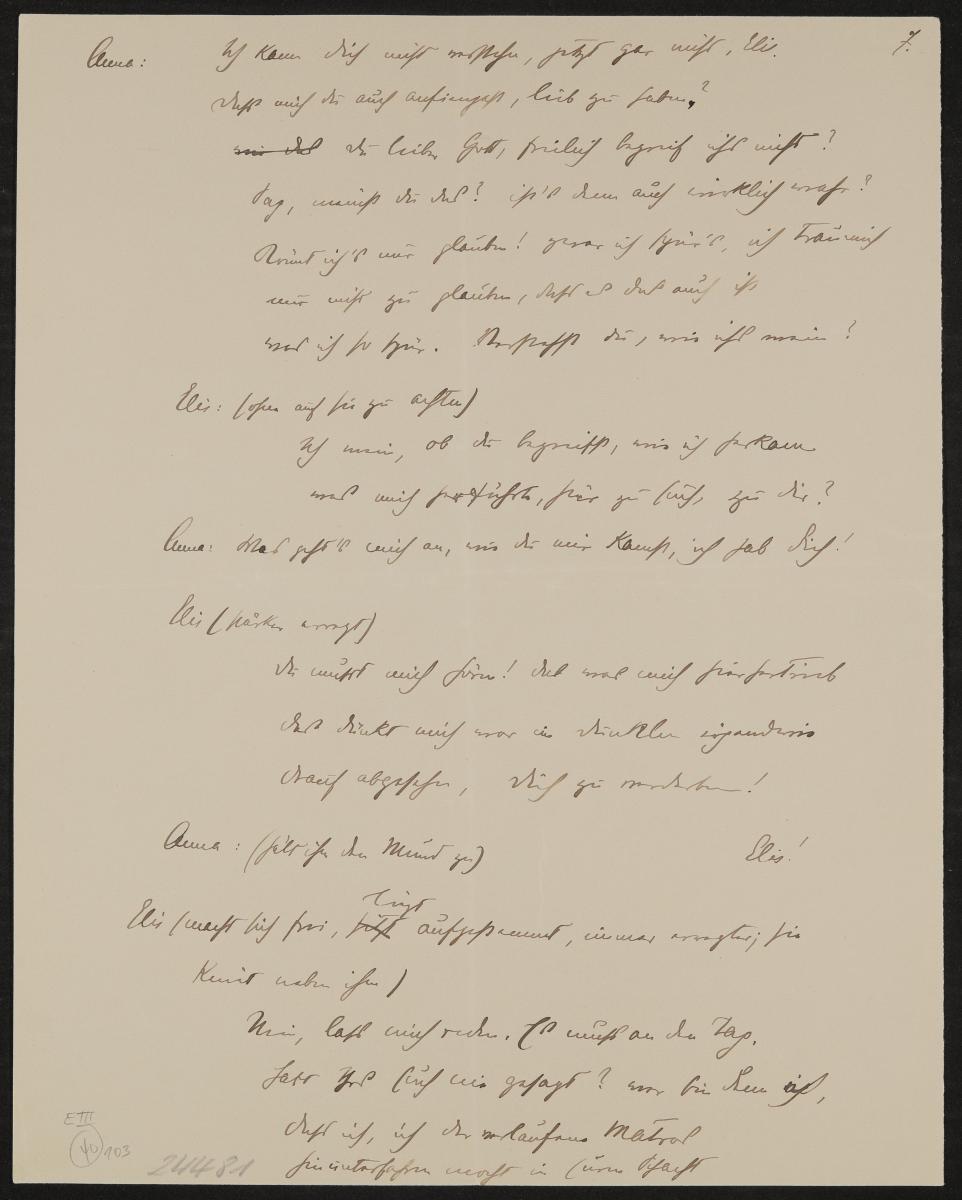 7.
Anna: Ich kann dich nicht verstehn, jetzt gar nicht, Elis.
Dass mich du auch anfiengest, lieb zu haben?
wie das du lieber Gott, freilich begreif ichs nicht?
Sag, meinst du das? ist's denn auch wirklich wahr?
Könnt ich's nur glauben! zwar ich spür's, ich trau mich
nur nicht zu glauben, dass es das auch ist
was ich so spür. Verstehst du, wie ichs mein?
Elis: (ohne auf sie zu achten)
Ich mein, ob du begreifst, wie ich herkam
was mich herführte, hier zu Euch, zu dir?
Anna: Was geht's mich an, wie du mir kamst, ich hab dich!
Elis (stärker erregt)
du musst mich hören! das was mich hierhertrieb
das dünkt mich war im dunklen irgendwie
drauf abgesehen, dich zu verderben!
Anna: (hält ihm den Mund zu) Elis!
liegt
Elis (macht sich frei, sitzt aufgestemmt, immer erregter; sie
kniet neben ihm)
Nein, lass mich reden. Es muss an den Tag.
Habt Ihr Euch nie gesagt? wer bin denn ich,
dass ich, ich der verlaufene Matros
hinunterfahren mocht in Euren Schacht
EIII
103
24481